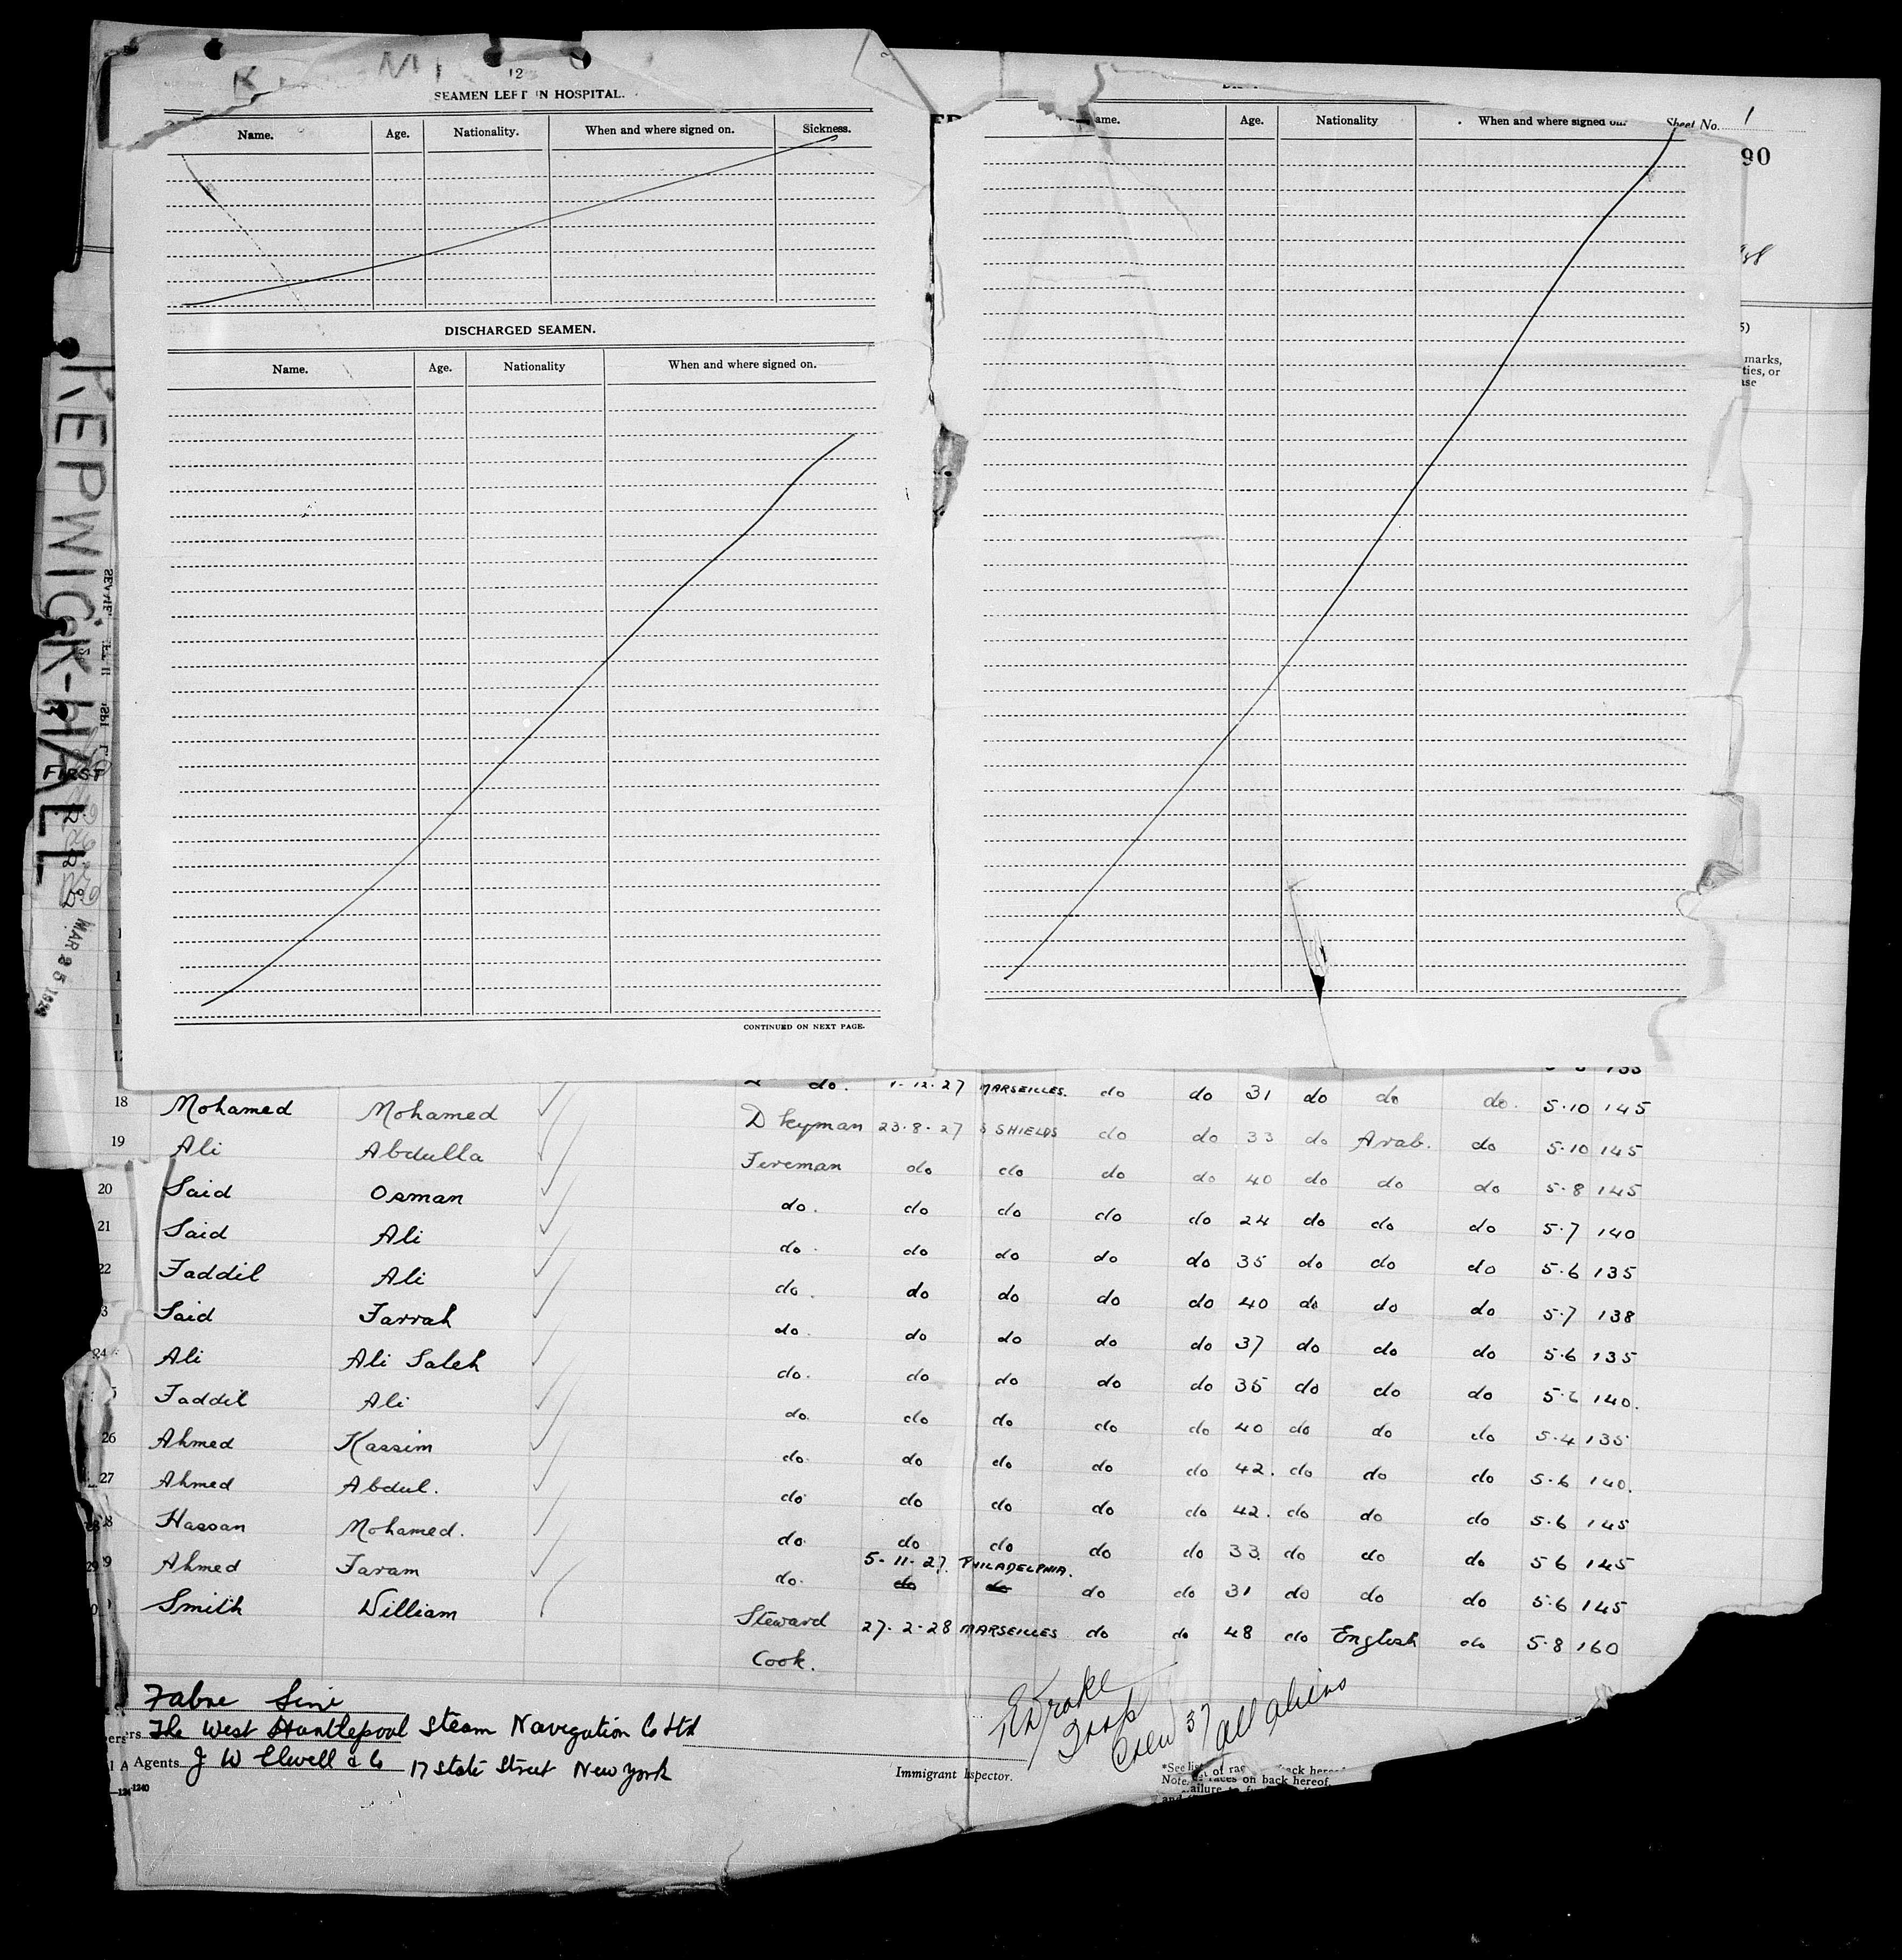 KEPWICK-HALL
FIRST
MAR 25 1928
12
SEAMEN LEFT IN HOSPITAL.
Name. Age. Nationality. When and where signed on. Sickness.
DISCHARGED SEAMEN.
Name. Age. Nationality When and where signed on.
CONTINUED ON NEXT PAGE.
ame. Age. Nationality When and where signed on.
Sheet No. 1
90
marks,
ties, or
ase
do. 1-12-27 MARSEILLES. do do 31 do do do. 5-10 145
18 Mohamed Mohamed D keyman 23-8-27 S SHIELDS do do 33 do Arab. do 5-10 145
19 Ali Abdulla Fireman do do do do 40 do do do 5-8 145
20 Said Osman do. do do do do 24 do do do 5-7 140
21 Said Ali do. do do do do 35 do do do 5-6 135
22 Faddil Ali do. do do do do 40 do do do 5-7 138
3 Said Farrah do. do do do do 37 do do do 5-6 135
24 Ali Ali Saleh do. do do do do 35 do do do 5-6 140.
5 Faddil Ali do. do do do do 40 do do do 5-4 135
26 Ahmed Kassim do. do do do do 42. do do do 5-6 140.
27 Ahmed Abdul. do do do do do 42. do do do 5-6 145
28 Hassan Mohamed. do. do do do do 33. do do do 5 6 145
5-11-27. PHILADELPHIA.
29 Ahmed Faram do. do do do do 31 do do do 5-6 145
Smith William Steward 27-2-28 MARSEILLES do do 48 do English do 5-8 160
Cook.
Fabre Line
ers The West Hartlepool Steam Navigation Co Ltd
Agents J W Elwell & Co 17 State Street New York
Crew 37 all aliens
Immigrant Inspector.
1240